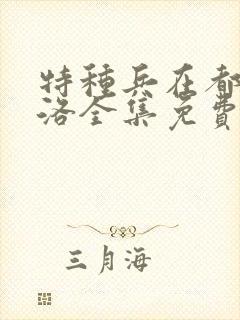 特种兵在都
洛全集免費
三月海